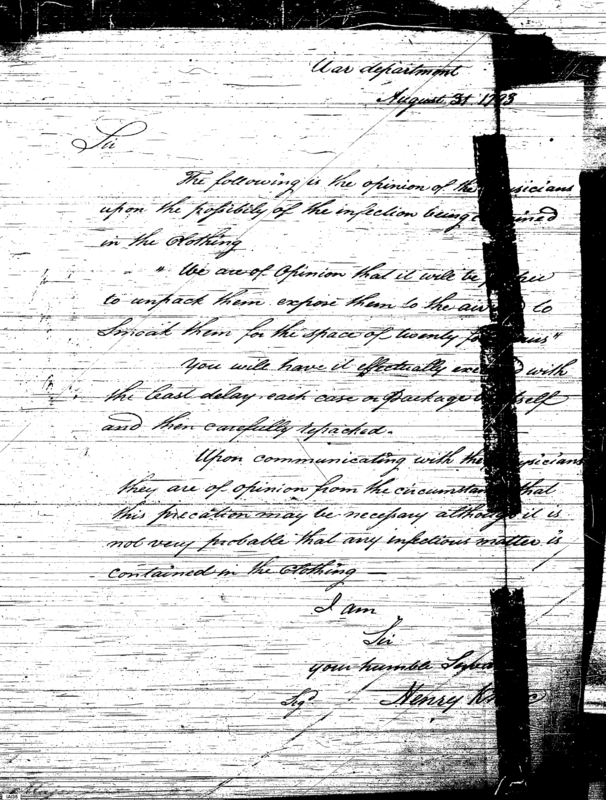 War department
August 31 1793
Sir
The following is the opinion of the physicians
upon the possibily of the infection being contained
in the Clothing
" We are of Opinion that it will be
to unpack them expose them to the air to
Smoak them for the space of twenty four hours"
You will have it effectually executed with
the least delay each case or package by itself
and then carefully repacked.
Upon communicating with the physicians
they are of opinion from the circumstances that
this precation may be necessary although it is
not very probable that any infectious matter is
contained in the Clothing —
I am
Sir
your humble Servant
Sigd Henry Knox